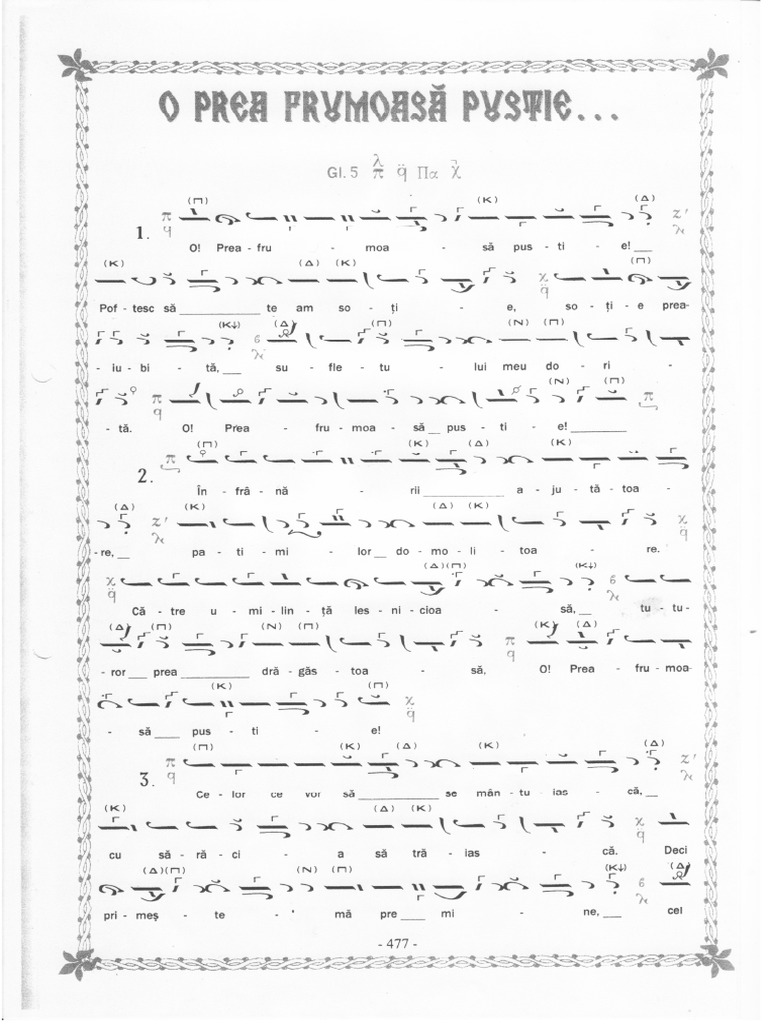 O PREA FRUMOASĂ PUSTIE...
Gl. 5 λ π q̈ Πα
(Π) (K) (Δ)
1. O! Prea - fru - moa - să pus - ti - e! __
(K) (Δ) (K) (Π)
Pof - tesc să __________ te am so - ți - e, so - ți - e prea-
(K↓) (Δ) (Π) (N) (Π)
- iu - bi - tă, __ su - fle - tu - lui meu do - ri -
(N) (Π)
- tă. O! Prea - fru - moa - să __ pus - ti - e! ________
(Π) (K) (Δ) (K)
2. În - frâ - nă - rii __________ a - ju - tă - toa -
(Δ) (K) (Δ) (K)
- re, __ pa - ti - mi - lor __ do - mo - li - toa - re.
(Δ)(Π) (K↓)
Că - tre u - mi - lin - ță les - ni - cioa - să, __ tu - tu-
(Δ) (Π) (N) (Π) (K) (Δ)
- ror __ prea ________ dră - găs - toa - să, O! Prea - fru - moa-
(K) (Π)
- să ___ pus - ti - e!
(Π) (K) (Δ) (K) (Δ)
3. Ce - lor ce vor să __________ se mân - tu - ias - că, __
(K) (Δ) (K)
cu să - ră - ci - a să tră - ias - că. Deci
(Δ)(Π) (N) (Π) (K↓) (Δ)
pri - meș - te - ' mă pre ___ mi - ne, ___ cel
- 477 -